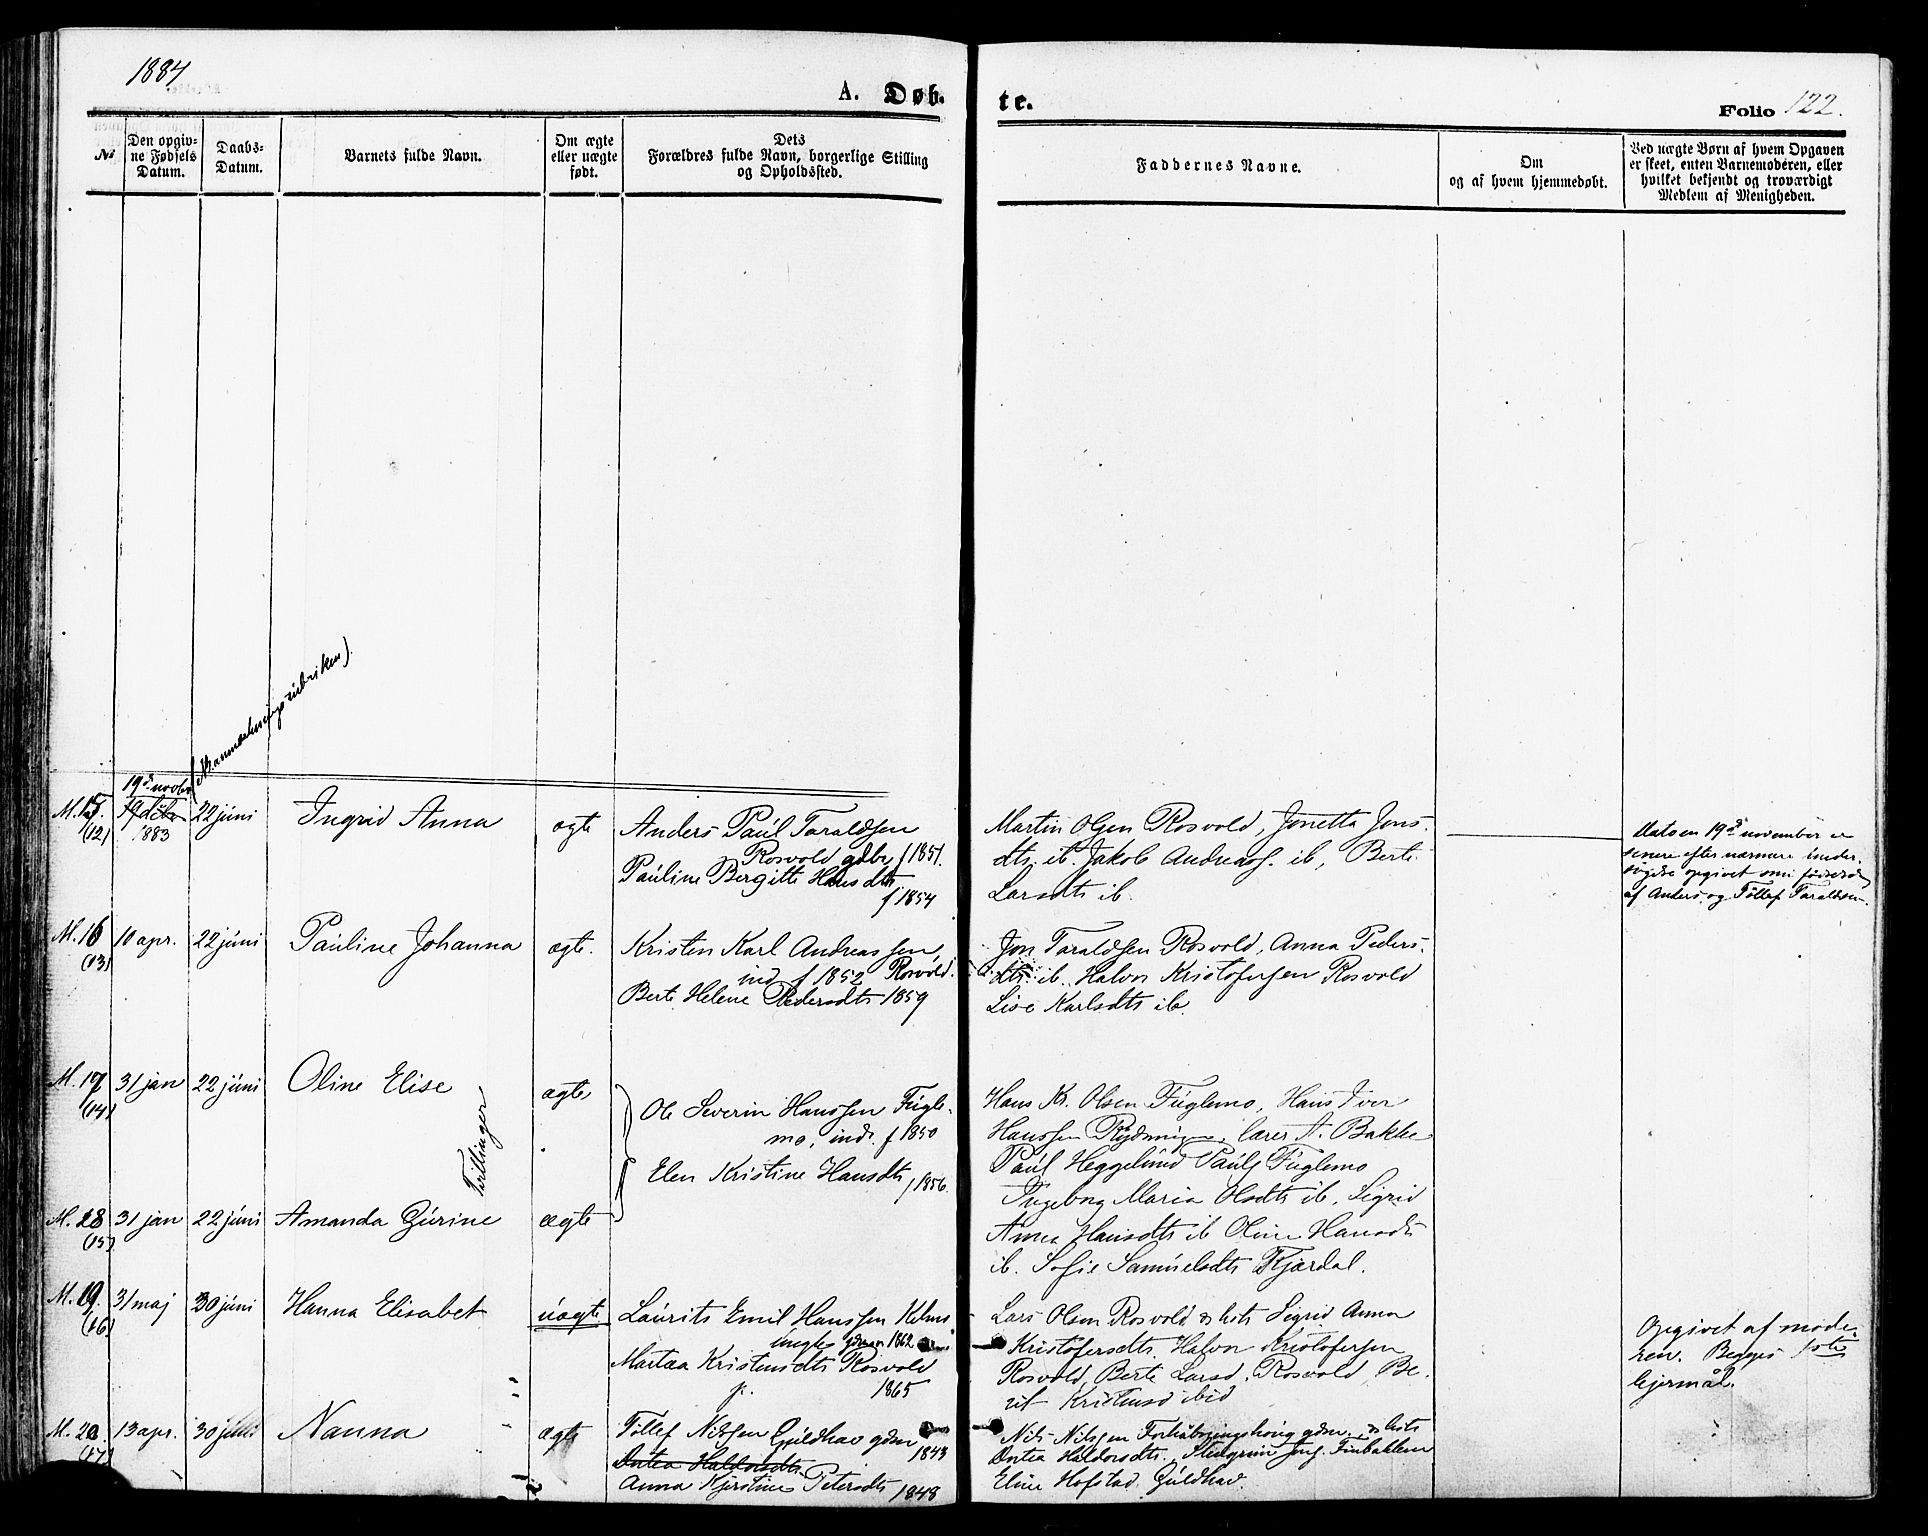 1884
A. Døb.
te.
Folio 122.
№
Den opgiv-
ne Fødsels
Datum.
Daabs-
Datum.
Barnets fulde Navn.
Om ægte
eller uægte
født.
Dets
Forældres fulde Navn, borgerlige Stilling
og Opholdssted.
Faddernes Navne.
Om
og af hvem hjemmedøbt.
Ved uægte Børn af hvem Opgaven
er skeet, enten Barnemoderen, eller
hvilket bekjendt og troværdigt
Medlem af Menigheden.
anmærkningsrubriken).
M. 15.
(12)
19de novbr
1883
22 júni
Ingrid Anna
ægte
Anders Paúl Taraldsen
Rosvold gdbr f 1851.
Paúline Bergitte Hansdtr
f 1854
Martin Olsen Rosvold, Jonetta Jons-
dtr. ib. Jakob Andreass. ib, Berte
Larsdtr ib.
Datoen 19de november er
senere efter nærmere under-
søgelse opgivet som fødselsdag
af Anders og Tollef Taraldsen.
M. 16
(13)
10 apr.
22 júni
Paúline Johanna
ægte.
Kristen Karl Andreassen,
ind f 1852 Rosvold.
Berte Helene Pedersdtr 1859
Jon Taraldsen Rosvold, Anna Peders-
dtr. ib. Halvor Kristofersen Rosvold
Lise Karlsdtr ib.
M. 17
(14)
31 jan
22 júni
Oline Elise
Tvillinger
ægte
Ole Severin Hanssen Fúgle-
mo, indr. f 1850
Elen Kristine Hansdtr
f 1856.
Hans Kr. Olsen Fúglemo, Hans Iver
Hanssen Rydningen, lærer A. Bakke
Paúl Heggelúnd Paúls. Fúglemo
Ingeborg Maria Olsdtr ib, Sigrid
Anna Hansdtr ib Oline Hansdtr
ib. Sofie Samúelsdtr Kjærdal.
M. 18
(15)
31 jan
22 júni
Amanda Gúrine
ægte
M. 19.
(16)
31 maj
30 júni
Hanna Elisabet
úægte
Laúrits Emil Hanssen
úngk. 1862
Martea Kristensdtr Rosvold
p. 1865
Lars Olsen Rosvold & hst Sigrid Anna
Kristofersdtr. Halvor Kristofersen
Rosvold, Berte Larsd. Rosvold, Be-
rit Kristensd ibid
Opgivet af mode-
ren. Begges 1ste
lejermål.
M. 20.
(17)
13 apr.
30 júni
Nanna
ægte
Tollef Nilssen Gúldhav gdm
1843
Antea Haldorsdtr
Anna Kjerstine Petersdtr 1848
Nils Nilssen gdm. & hst
Antea Haldorsdtr. Stengrim Jng. Finbakken
Eline Hofstad. Gúldhav.